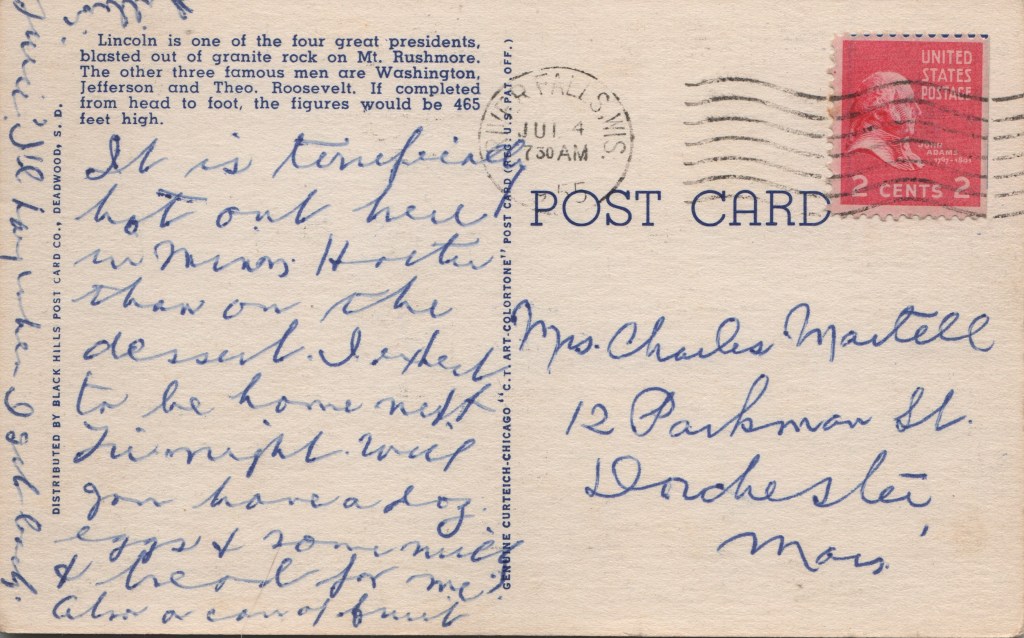 Lincoln is one of the four great presidents,
blasted out of granite rock on Mt. Rushmore.
The other three famous men are Washington,
Jefferson and Theo. Roosevelt. If completed
from head to foot, the figures would be 465
feet high.
It is terrifically
hot out here
in Minn. Hotter
than on the
dessert. I expect
to be home next
Tue. night. Will
you have a doz.
eggs & some milk
& bread for me.
Also a can of fruit
juice. I'll pay when I get back.
DISTRIBUTED BY BLACK HILLS POST CARD CO., DEADWOOD, S. D.
GENUINE CURTEICH-CHICAGO "C.T. ART-COLORTONE" POST CARD (REG. U.S. PAT. OFF.)
RIVER FALLS, WIS.
JUL 4
730 AM
UNITED
STATES
POSTAGE
JOHN
ADAMS
1797-1801
2 CENTS 2
POST CARD
Mrs. Charles Martell
12 Parkman St.
Dorchester,
Mass.